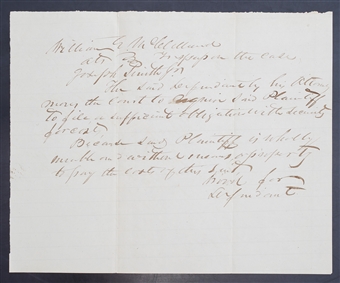 William G McClelland
ats } Trespass on the Case
Joseph Smith Jr
The said Defendant by his Attorney
moves the Court to said Plaintiff
to file a sufficient obligation with security
for cost
Because said Plaintiff is wholly
unable and without means or property
to pay the costs of this suit
for
Defendant